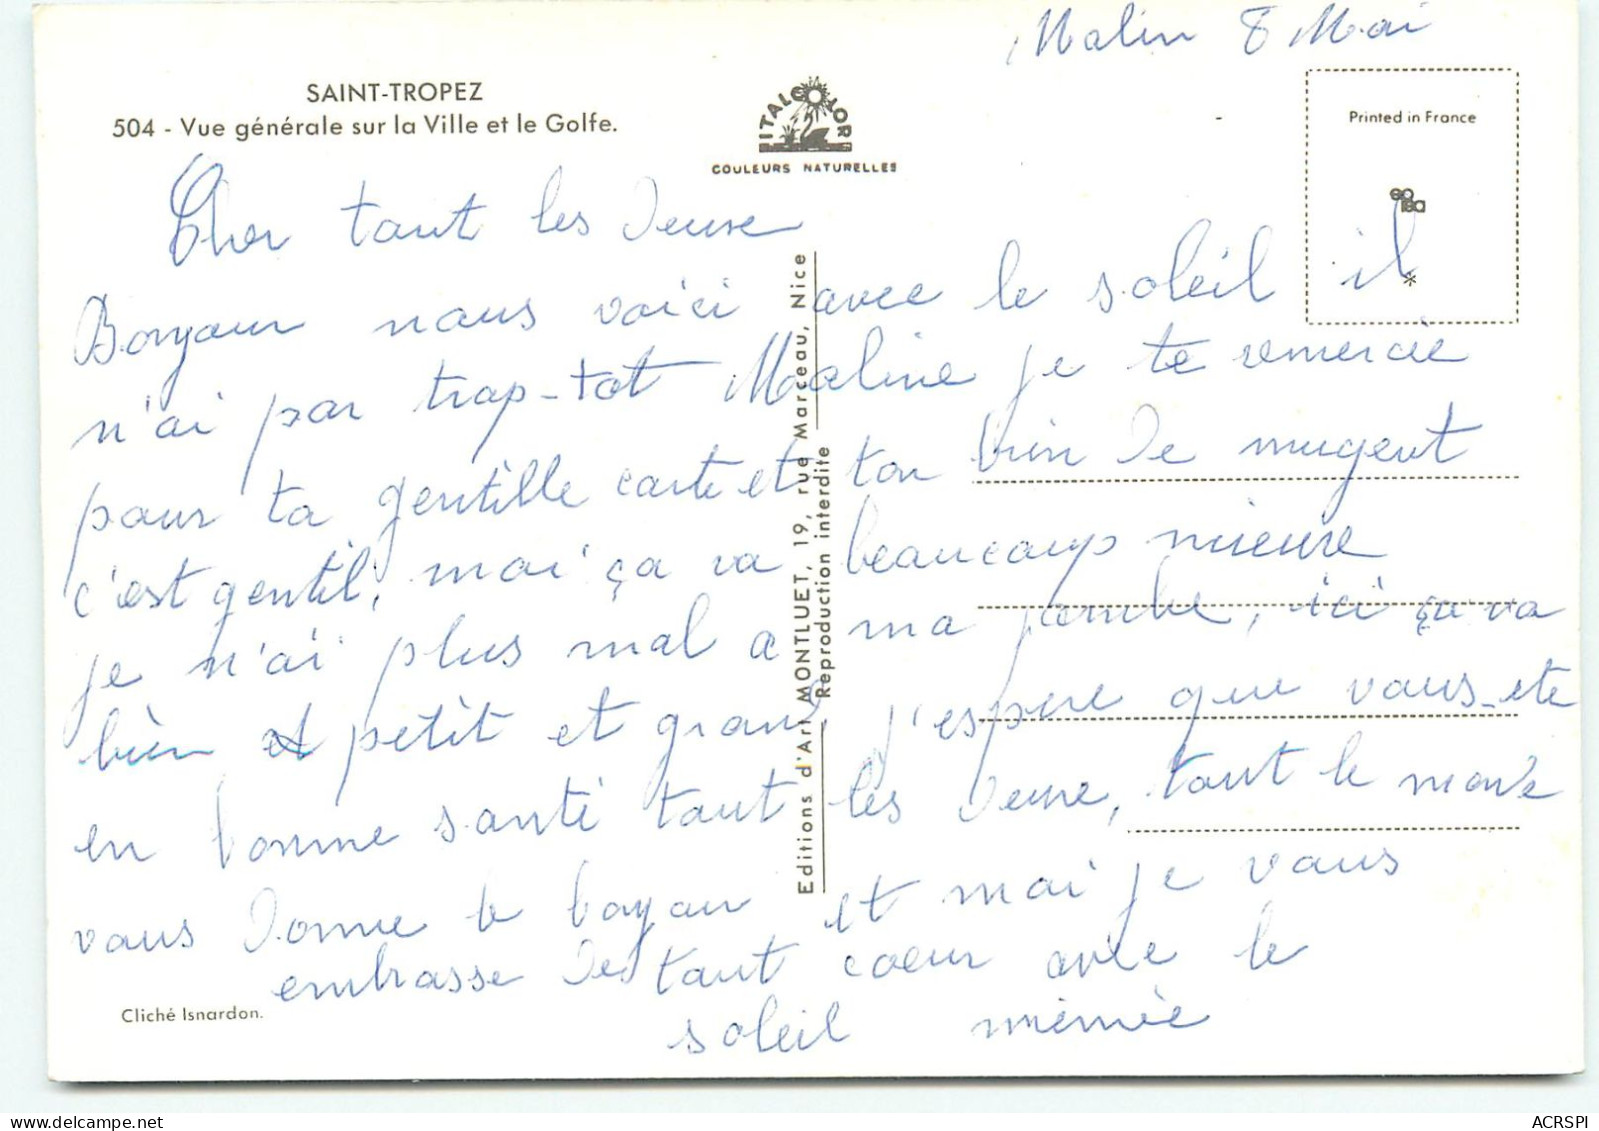 Matin 8 Mai
SAINT-TROPEZ
504 - Vue générale sur la Ville et le Golfe.
ITALCOLOR
COULEURS NATURELLES
Printed in France
Cher tout les deuxe
Bonjour nous voici avec le soleil il
n'ai pas trop-tot Maline je te remercie
pour ta gentille carte et ton brin de mugent
c'est gentil, moi ça va beaucoup mieuxe
je n'ai plus mal a ma jambe, ici ça va
bien et petit et grand, j'espere que vous-ete
en bonne santé tout les deuxe, tout le monde
vous donne le boyou et moi je vous
embrasse de tout coeur avec le
soleil mémée
Editions d'Art MONTLUET, 19, rue Marceau, Nice
Reproduction interdite
Cliché Isnardon.
ACRSPI